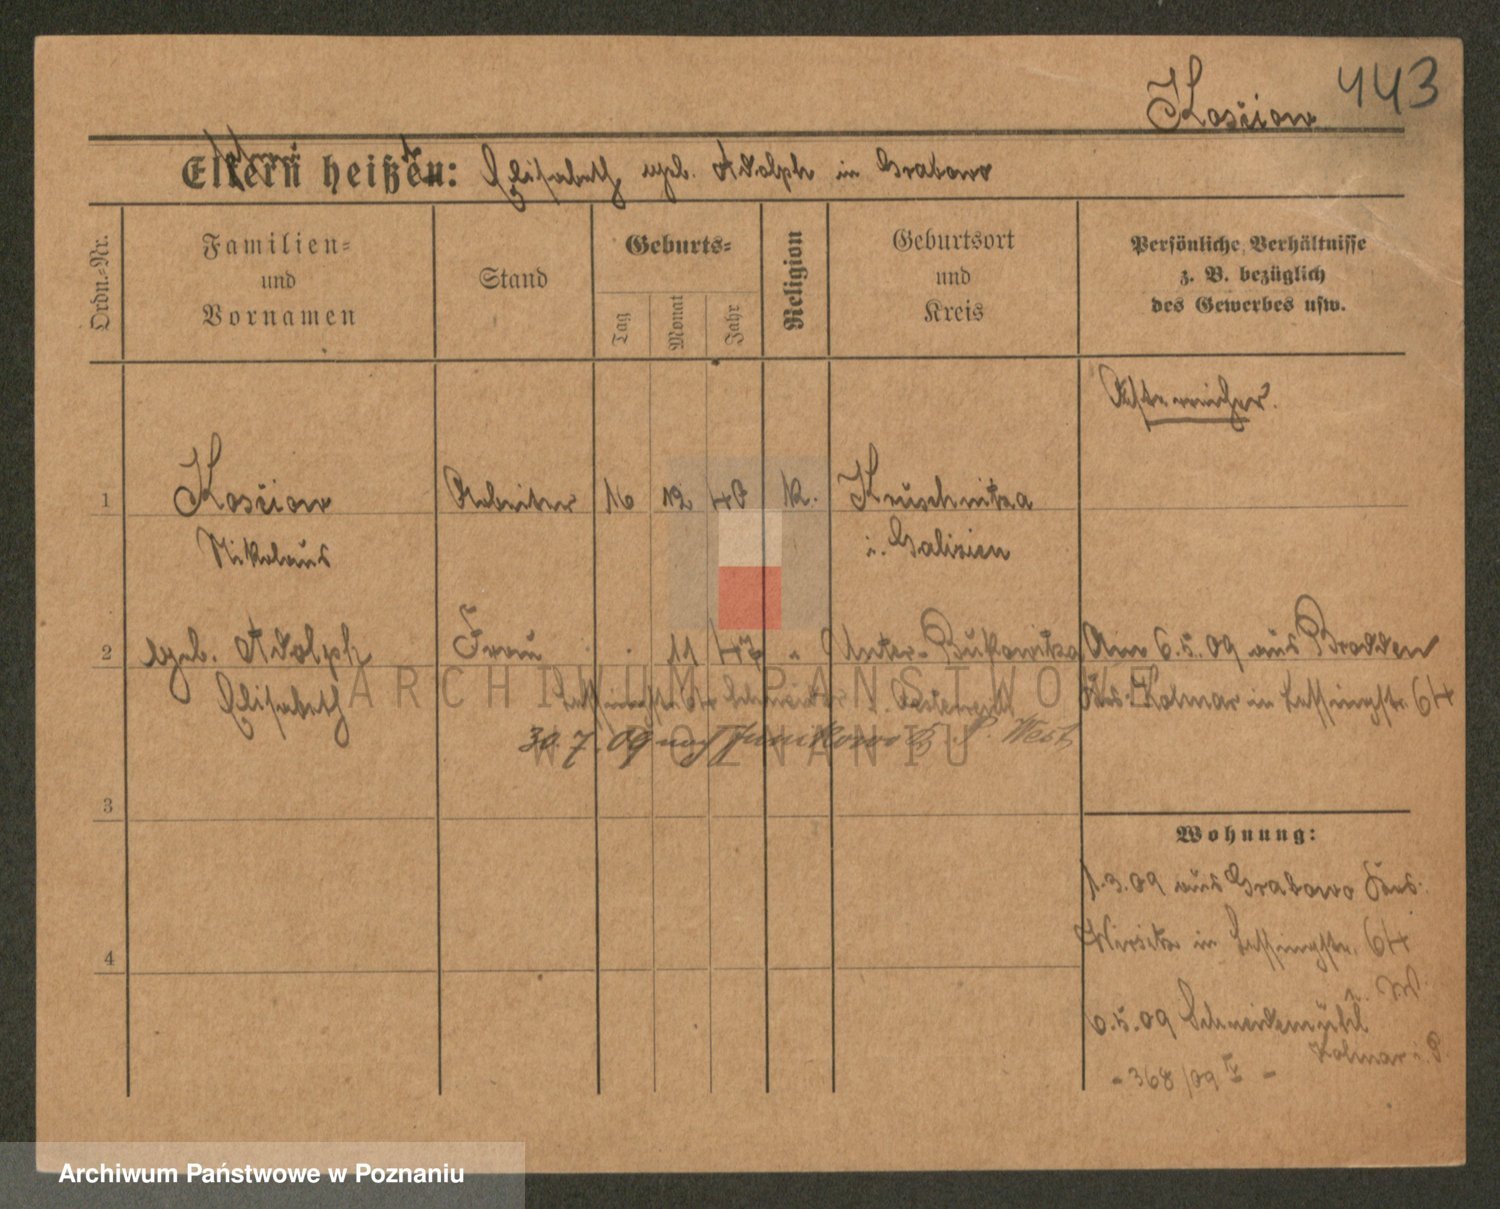 Kosciow 443
Eltern heißen: Elisabeth geb. Adolph in Grabowo
Ordn.-Nr.
Familien-
und
Vornamen
Stand
Geburts-
Tag
Monat
Jahr
Religion
Geburtsort
und
Kreis
Persönliche Verhältnisse
z. B. bezüglich
des Gewerbes usw.
Österreicher.
1 Kosciow Arbeiter 16 12 40 k. Kruschnitza
Nikolaus i. Galizien
2 geb. Adolph Frau 11 47 " Unter-Bukowitza Am 6.5.09 aus Brodden
Elisabeth
Krs. Kolmar in Lessingstr. 64
30.7.09 nach Junikowo Kr. P. West
3
Wohnung:
1.3.09 aus Grabowo Krs.
Wirsitz in Lessingstr. 64
4
6.5.09 Schneidemühl
Kolmar i. P.
- 368/09 V -
ARCHIWUM PAŃSTWOWE
W POZNANIU
Archiwum Państwowe w Poznaniu